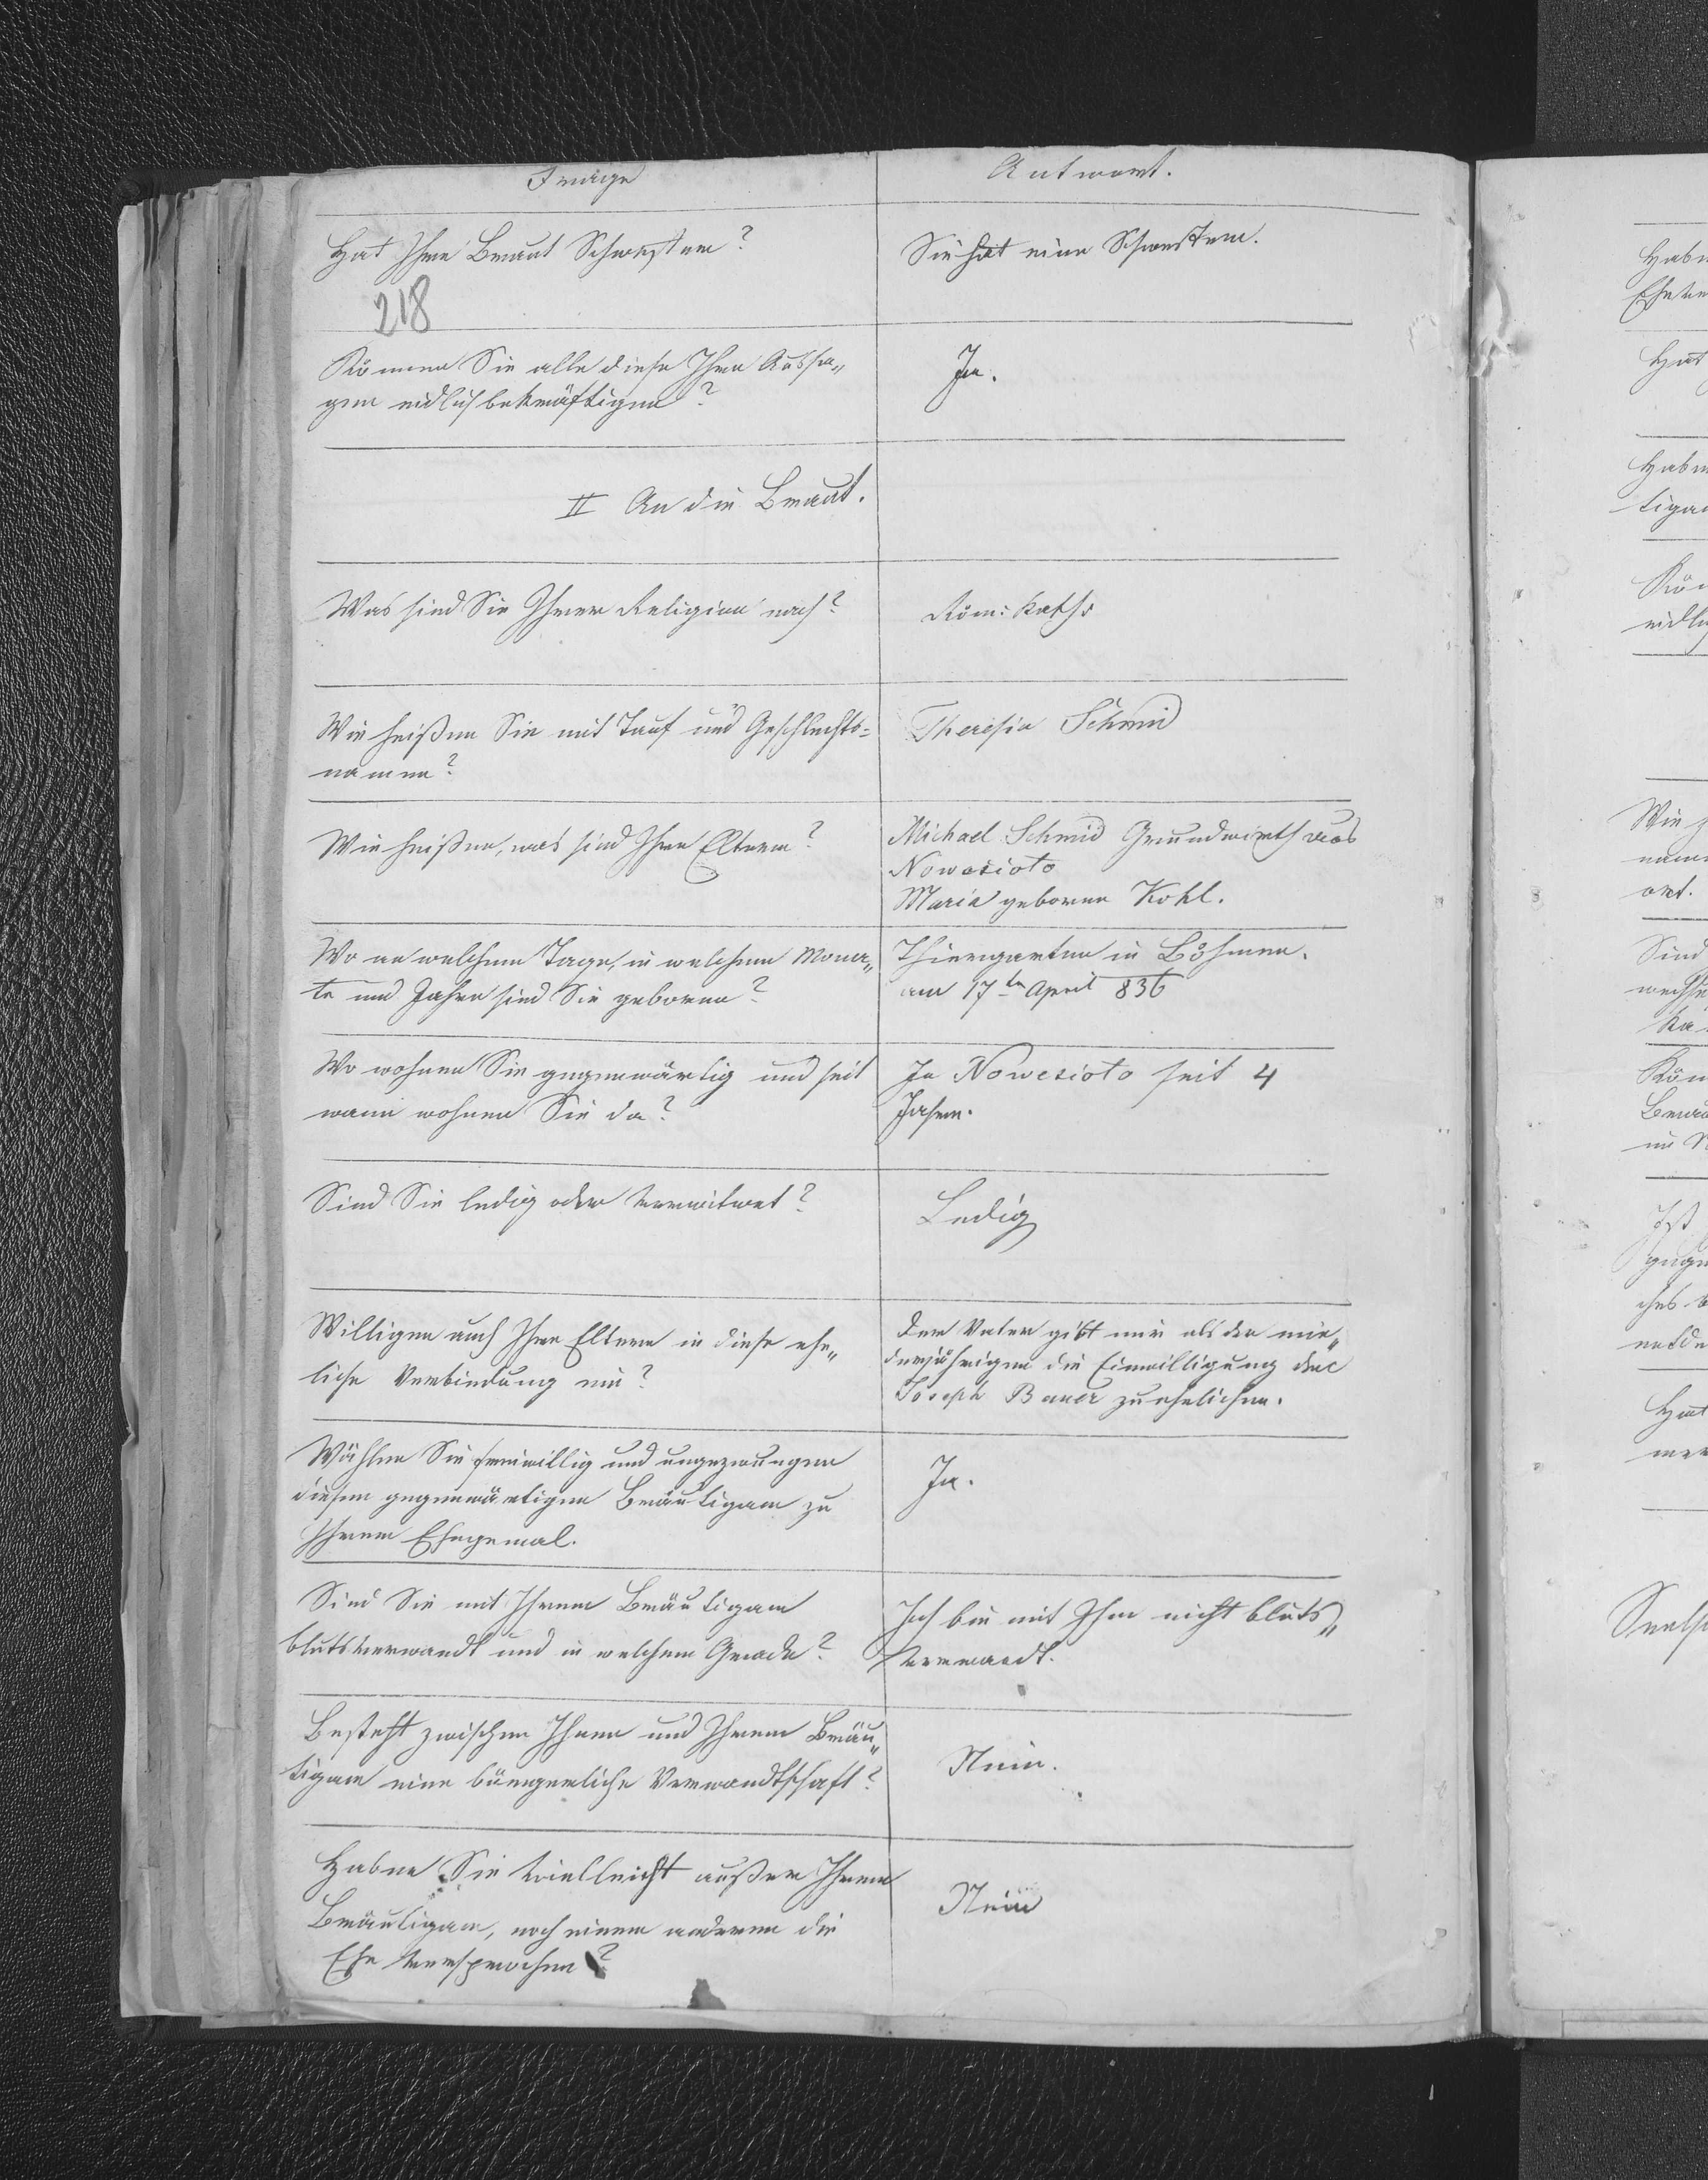 Frage
Antwort.
Hat Ihre Braut Schwestern?
Sie hat eine Schwestern.
218
Können Sie alle diese Ihre Aussa„
gen eidlich bekräftigen?
Ja.
II An die Braut.
Was sind Sie Ihrer Religion nach?
Röm: Kath:
Wie heißen Sie mit Tauf und Geschlechts=
namen?
Theresia Schmid
Wie heißen, was sind Ihre Eltern?
Michael Schmid Grundwirth aus
Nowesioto
Maria geborne Kohl.
Wo an welchem Tage, in welchem Mona„
te und Jahre sind Sie geboren?
Thiergarten in Böhmen.
am 17ten April 836
Wo wohnen Sie gegenwärtig und seit
wann wohnen Sie da?
In Nowesioto seit 4
Jahren.
Sind Sie ledig oder verwitwet?
Ledig
Willigen auch Ihre Eltern in diese ehe„
liche Verbindung ein?
Der Vater gibt mir als der min„
derjährigen die Einwilligung den
Joseph Bauer zu ehelichen.
Wählen Sie freiwillig und ungezwungen
diesen gegenwärtigen Bräutigam zu
Ihrem Ehegemal.
Ja.
Sind Sie mit Ihrem Bräutigam
blutsverwandt und in welchem Grade?
Ich bin mit Ihm nicht bluts„
verwandt.
Besteht zwischen Ihnen und Ihrem Bräu„
tigam eine bürgerliche Verwandtschaft?
Nein.
Haben Sie vielleicht außer Ihrem
Bräutigam, noch einem anderen die
Ehe versprochen?
Nein